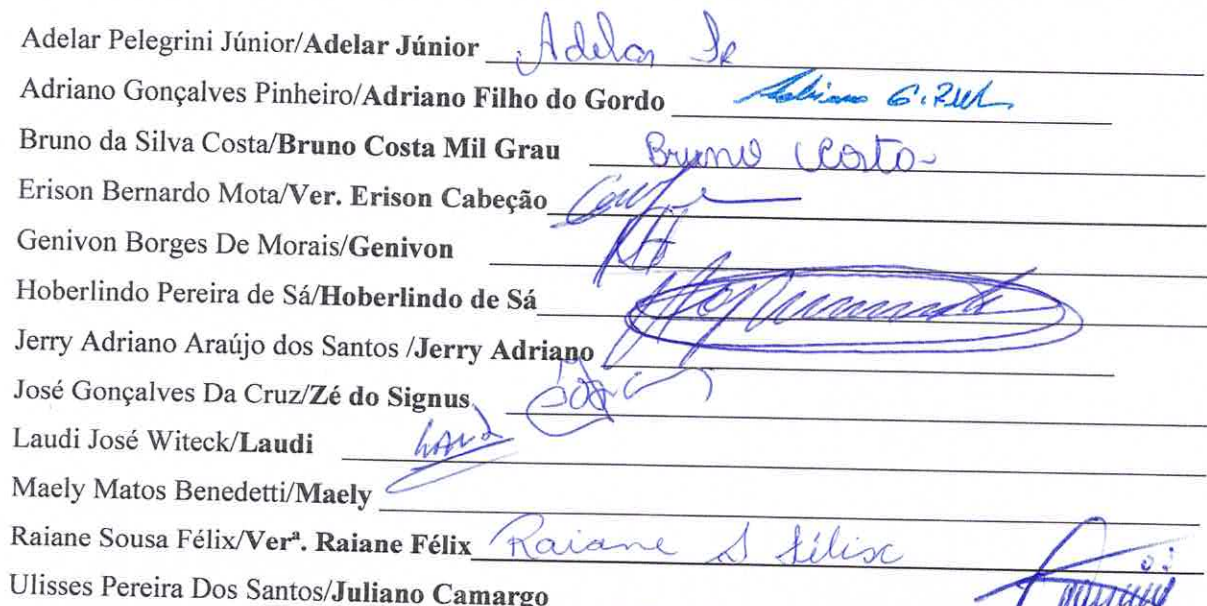 Adelar Pelegrini Júnior/Adelar Júnior Adelar Jr
Adriano Gonçalves Pinheiro/Adriano Filho do Gordo
Bruno da Silva Costa/Bruno Costa Mil Grau Bruno Costa
Erison Bernardo Mota/Ver. Erison Cabeção
Genivon Borges De Morais/Genivon
Hoberlindo Pereira de Sá/Hoberlindo de Sá
Jerry Adriano Araújo dos Santos /Jerry Adriano
José Gonçalves Da Cruz/Zé do Signus
Laudi José Witeck/Laudi
Maely Matos Benedetti/Maely
Raiane Sousa Félix/Verª. Raiane Félix Raiane S Félix
Ulisses Pereira Dos Santos/Juliano Camargo